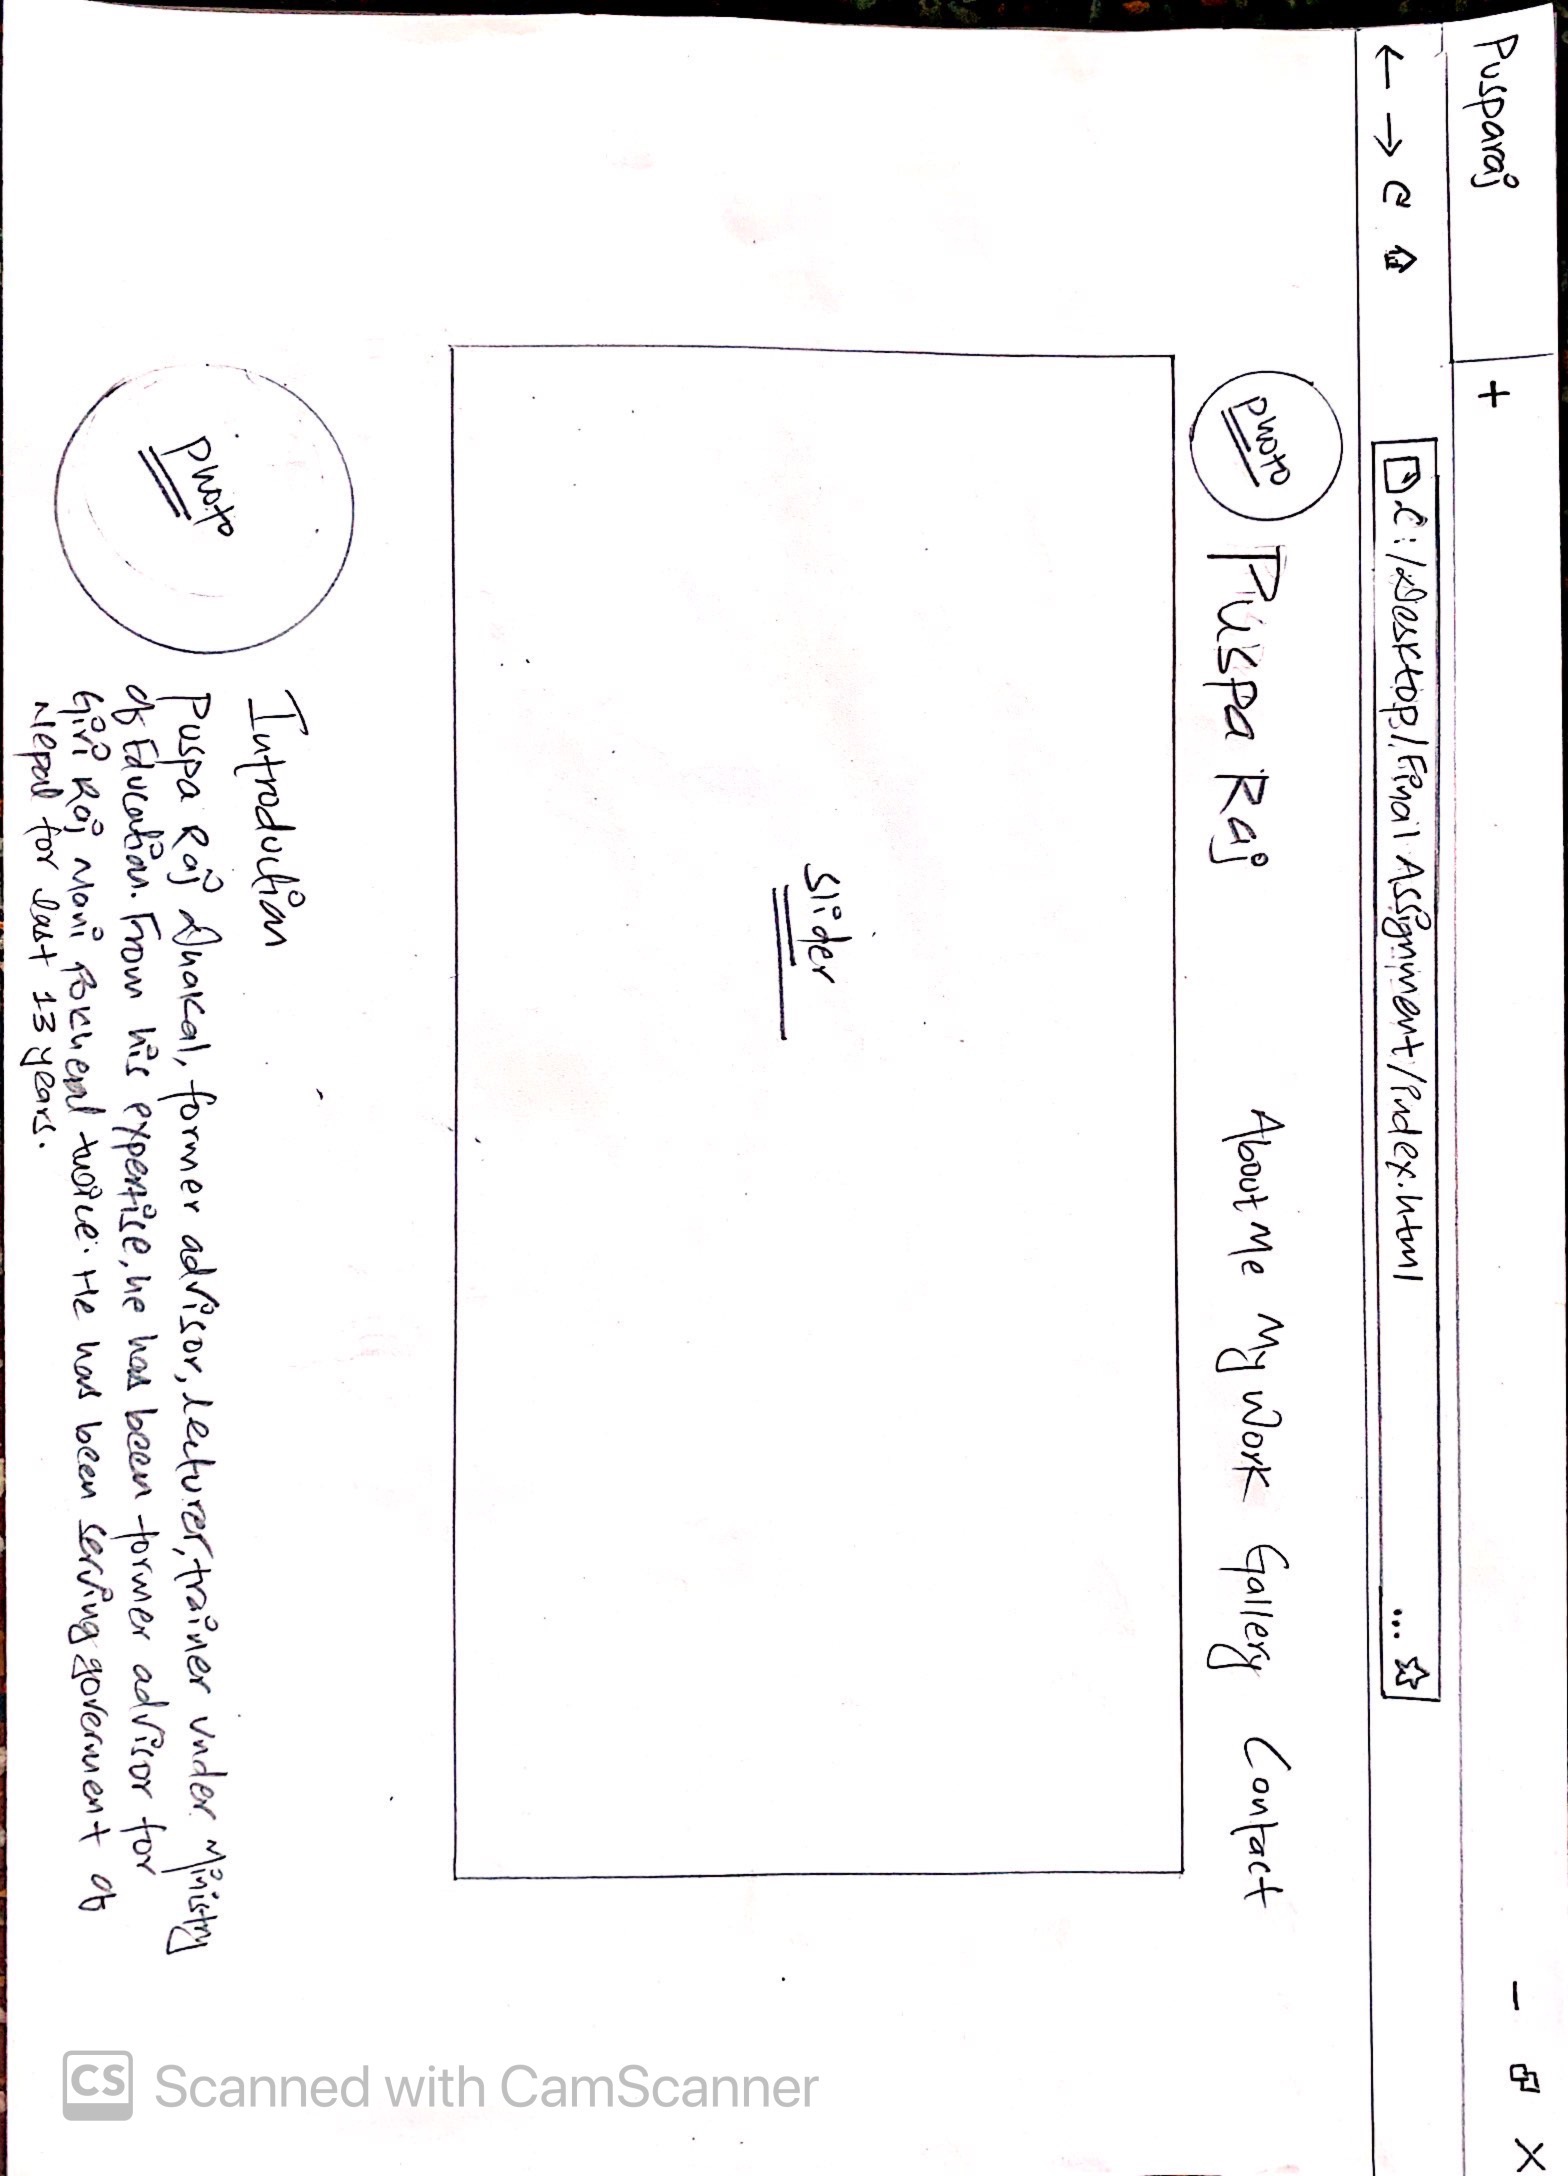 Pusparaj +
C:/Desktop/Final Assignment/index.html ...
photo Puspa Raj About Me My Work Gallery Contact
Slider
photo
Introduction
Puspa Raj Dhakal, former advisor, lecturer, trainer under Ministry
of Education. From his expertise, he has been former advisor for
Giri Raj Mani Pokheral twice. He has been serving government of
Nepal for last 13 years.
CS Scanned with CamScanner